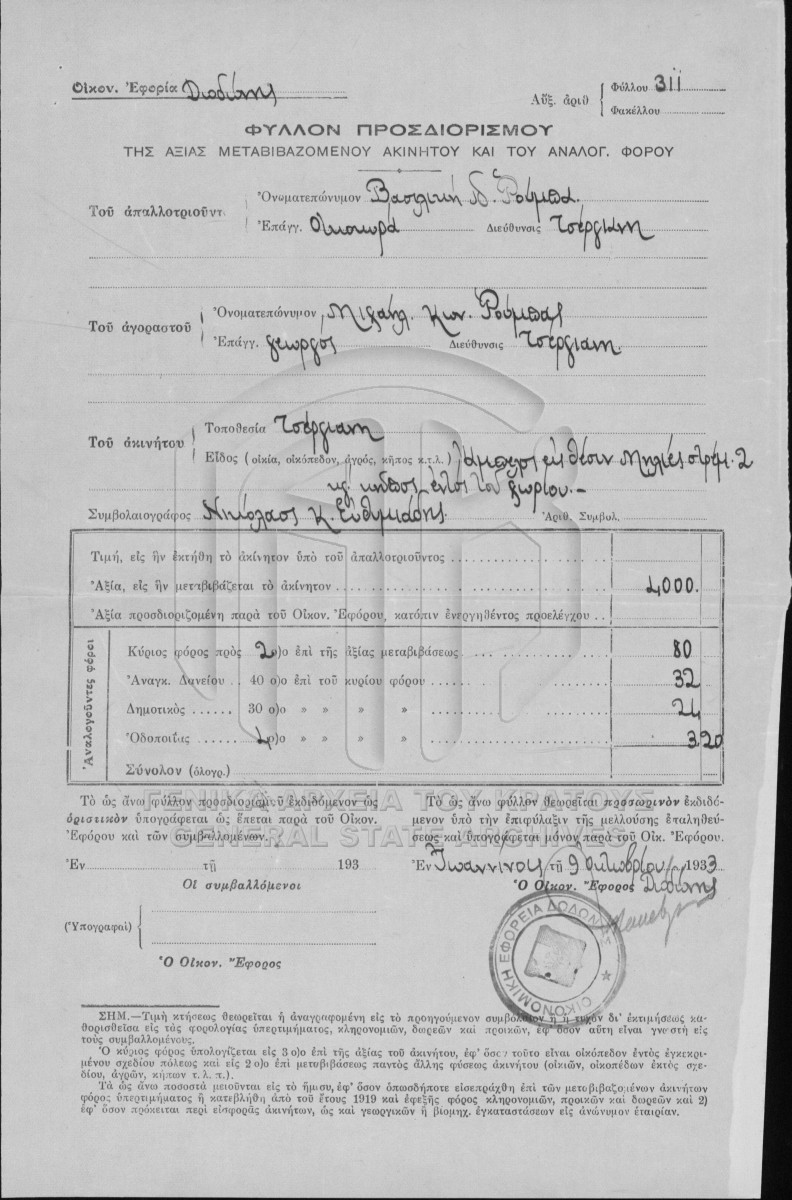 Οἰκον. Ἐφορία Δωδώνης
Αὔξ. ἀριθ { Φύλλου 311
Φακέλλου
ΦΥΛΛΟΝ ΠΡΟΣΔΙΟΡΙΣΜΟΥ
ΤΗΣ ΑΞΙΑΣ ΜΕΤΑΒΙΒΑΖΟΜΕΝΟΥ ΑΚΙΝΗΤΟΥ ΚΑΙ ΤΟΥ ΑΝΑΛΟΓ. ΦΟΡΟΥ
Τοῦ ἀπαλλοτριοῦντ. { Ὀνοματεπώνυμον Βασιλική Δ. Ρούμπα.
Ἐπάγγ. Οἰκοκυρά Διεύθυνσις Τσέργιανη
Τοῦ ἀγοραστοῦ { Ὀνοματεπώνυμον Μιχαήλ Κων. Ρούμπας
Ἐπάγγ. γεωργός Διεύθυνσις Τσέργιανη.
Τοῦ ἀκινήτου { Τοποθεσία Τσέργιανη
Εἶδος (οἰκία, οἰκόπεδον, ἀγρός, κῆπος κ.τ.λ.) ἄμπελος εἰς θέσιν Μηλιές στρέμ. 2
κῆπος ἐντός τοῦ χωρίου.-
Συμβολαιογράφος Νικόλαος Κ. Εὐθυμιάδης Ἀριθ. Συμβολ.
Τιμή, εἰς ἣν ἐκτήθη τὸ ἀκίνητον ὑπὸ τοῦ ἀπαλλοτριοῦντος
Ἀξία, εἰς ἣν μεταβιβάζεται τὸ ἀκίνητον 4000.
Ἀξία προσδιοριζομένη παρὰ τοῦ Οἰκον. Ἐφόρου, κατόπιν ἐνεργηθέντος προελέγχου
Ἀναλογοῦντες φόροι
Κύριος φόρος πρὸς 2 ο)ο ἐπὶ τῆς ἀξίας μεταβιβάσεως 80
Ἀναγκ. Δανείου 40 ο)ο ἐπὶ τοῦ κυρίου φόρου 32
Δημοτικὸς 30 ο)ο » » » » 24
Ὁδοποιΐας 4 ο)ο » » » » 3 20
Σύνολον (ὁλογρ.)
Τὸ ὡς ἄνω φύλλον προσδιορισμοῦ ἐκδιδόμενον ὡς
ὁριστικὸν ὑπογράφεται ὡς ἕπεται παρὰ τοῦ Οἰκον.
Ἐφόρου καὶ τῶν συμβαλλομένων.
Ἐν τῇ 193
Οἱ συμβαλλόμενοι
(Ὑπογραφαί)
Ὁ Οἰκον. Ἔφορος
Τὸ ὡς ἄνω φύλλον θεωρεῖται προσωρινὸν ἐκδιδό-
μενον ὑπὸ τὴν ἐπιφύλαξιν τῆς μελλούσης ἐπαληθεύ-
σεως καὶ ὑπογράφεται μόνον παρὰ τοῦ Οἰκ. Ἐφόρου.
Ἐν Ἰωαννίνοις τῇ 9 Ὀκτωβρίου 1933
Ὁ Οἰκον. Ἔφορος Δωδώνης
ΟΙΚΟΝΟΜΙΚΗ ΕΦΟΡΕΙΑ ΔΩΔΩΝΗΣ
ΓΕΝΙΚΑ ΑΡΧΕΙΑ ΤΟΥ ΚΡΑΤΟΥΣ
GENERAL STATE ARCHIVES
ΣΗΜ.—Τιμὴ κτήσεως θεωρεῖται ἡ ἀναγραφομένη εἰς τὸ προηγούμενον συμβόλαιον ἢ ἡ τυχὸν δι' ἐκτιμήσεως κα-
θορισθεῖσα εἰς τὰς φορολογίας ὑπερτιμήματος, κληρονομιῶν, δωρεῶν καὶ προικῶν, ἐφ' ὅσον αὕτη εἶναι γνωστὴ εἰς
τοὺς συμβαλλομένους.
Ὁ κύριος φόρος ὑπολογίζεται εἰς 3 ο)ο ἐπὶ τῆς ἀξίας τοῦ ἀκινήτου, ἐφ' ὅσον τοῦτο εἶναι οἰκόπεδον ἐντὸς ἐγκεκρι-
μένου σχεδίου πόλεως καὶ εἰς 2 ο)ο ἐπὶ μεταβιβάσεως παντὸς ἄλλης φύσεως ἀκινήτου (οἰκιῶν, οἰκοπέδων ἐκτὸς σχε-
δίου, ἀγρῶν, κήπων τ. λ. π.).
Τὰ ὡς ἄνω ποσοστὰ μειοῦνται εἰς τὸ ἥμισυ, ἐφ' ὅσον ὁπωσδήποτε εἰσεπράχθη ἐπὶ τῶν μεταβιβαζομένων ἀκινήτων
φόρος ὑπερτιμήματος ἢ κατεβλήθη ἀπὸ τοῦ ἔτους 1919 καὶ ἐφεξῆς φόρος κληρονομιῶν, προικῶν καὶ δωρεῶν καὶ 2)
ἐφ' ὅσον πρόκειται περὶ εἰσφορᾶς ἀκινήτων, ὡς καὶ γεωργικῶν ἢ βιομηχ. ἐγκαταστάσεων εἰς ἀνώνυμον ἑταιρίαν.